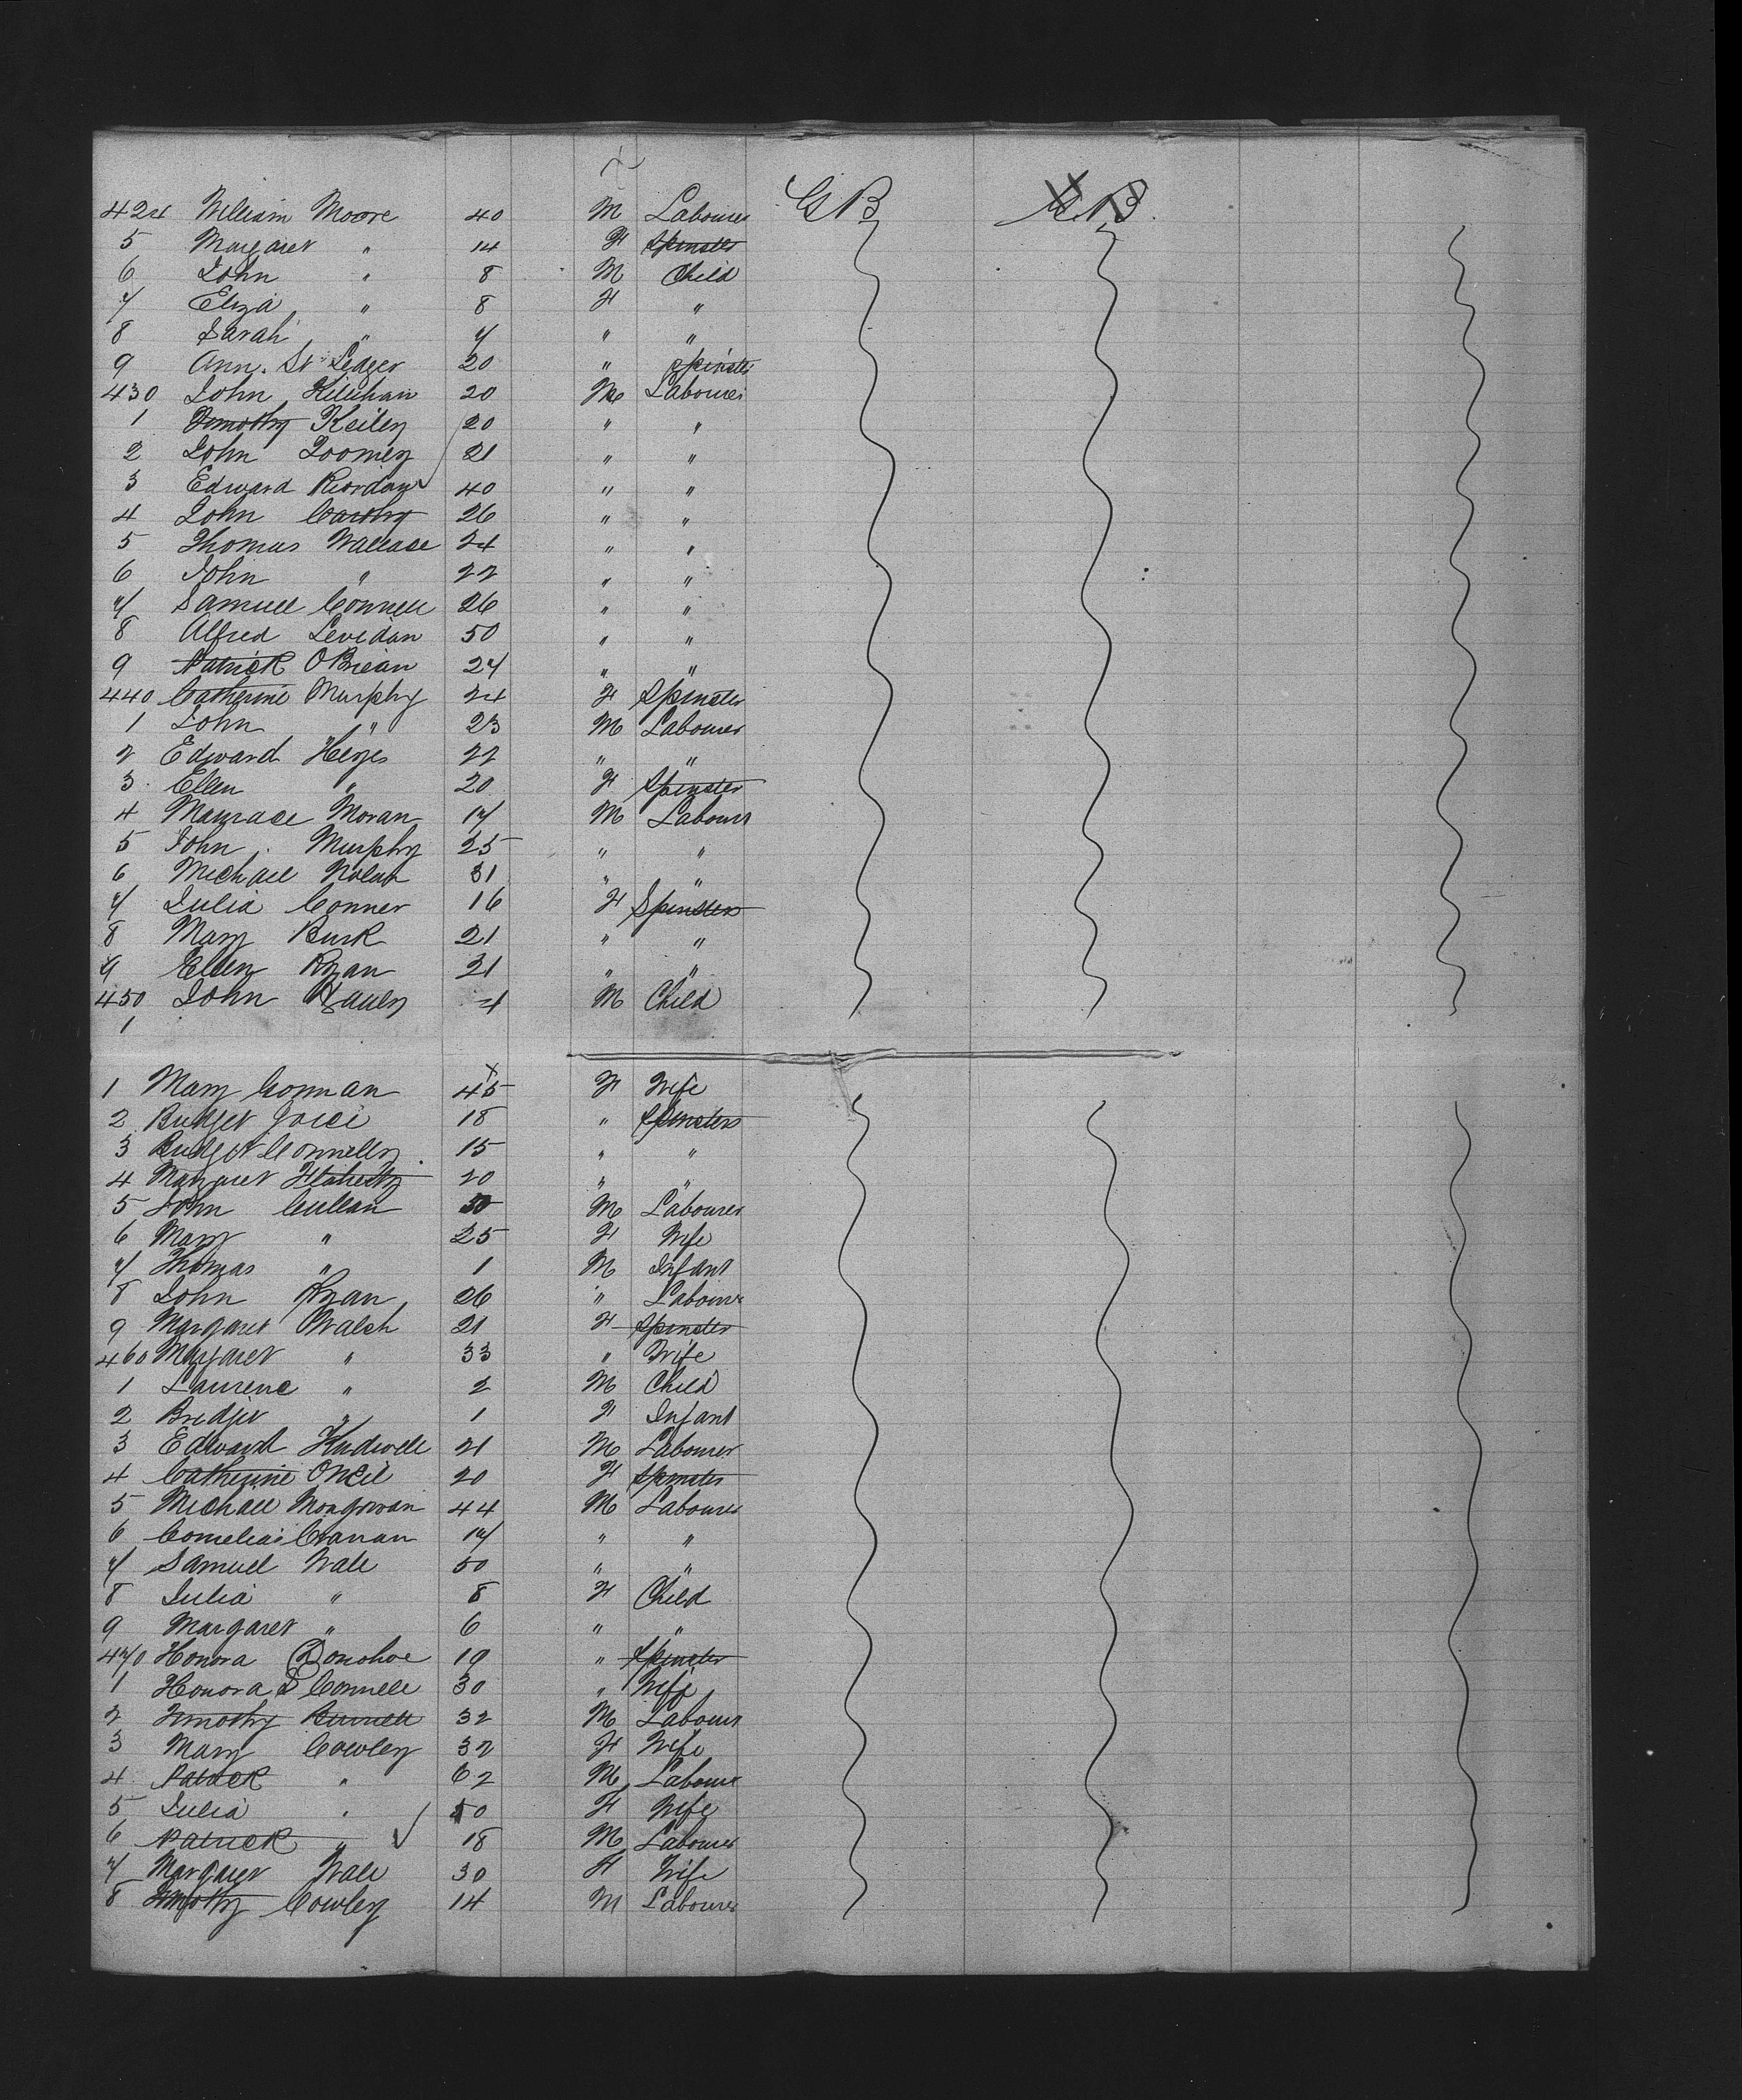 424 William Moore 40 M Labourer GB GB
5 Margaret " 14 F Spinster
6 John " 8 M Child
7 Eliza " 8 F "
8 Sarah " 7 " "
9 Ann St Ledger 20 " Spinster
430 John Hillihan 20 M Labourer
1 Timothy Keiley 20 " "
2 John Toomey 21 " "
3 Edward Riordan 40 " "
4 John Carthy 26 " "
5 Thomas Wallace 24 " "
6 John " 22 " "
7 Samuel Connell 26 " "
8 Alfred Levidan 50 " "
9 Patrick OBrian 27 " "
440 Catherine Murphy 24 F Spinster
1 John " 23 M Labourer
2 Edward Heyes 22 " "
3 Ellen " 20 F Spinster
4 Maurace Moran 17 M Labourer
5 John Murphy 25 " "
6 Michael Nolan 31 " "
7 Julia Conner 16 F Spinster
8 Mary Burk 21 " "
9 Ellen Ryan 21 " "
450 John 4 M Child
1
1 Mary Gorman 45 F Wife
2 Bridget Joice 18 " Spinster
3 Bridget Connelly 15 " "
4 Margaret Flaherty 20 " "
5 John Cullan 30 M Labourer
6 Mary " 25 F Wife
7 Thomas " 1 M Infant
8 John Ryan 26 " Labourer
9 Margaret Walsh 21 F Spinster
460 Margaret " 33 " Wife
1 Laurence " 2 M Child
2 Bridget " 1 F Infant
3 Edward 21 M Labourer
4 Catherine ONeil 20 F Spinster
5 Michael Mongovan 44 M Labourer
6 Cornelias Cranan 17 " "
7 Samuel Wall 50 " "
8 Julia " 8 F Child
9 Margaret " 6 " "
470 Honora Donohoe 19 " Spinster
1 Honora Connell 30 " Wife
2 Timothy 32 M Labourer
3 Mary Cowley 32 F Wife
4 Patrick " 62 M Labourer
5 Julia " 50 F Wife
6 Patrick " 18 M Labourer
7 Margaret Wall 30 F Wife
8 Timothy Cowley 14 M Labourer